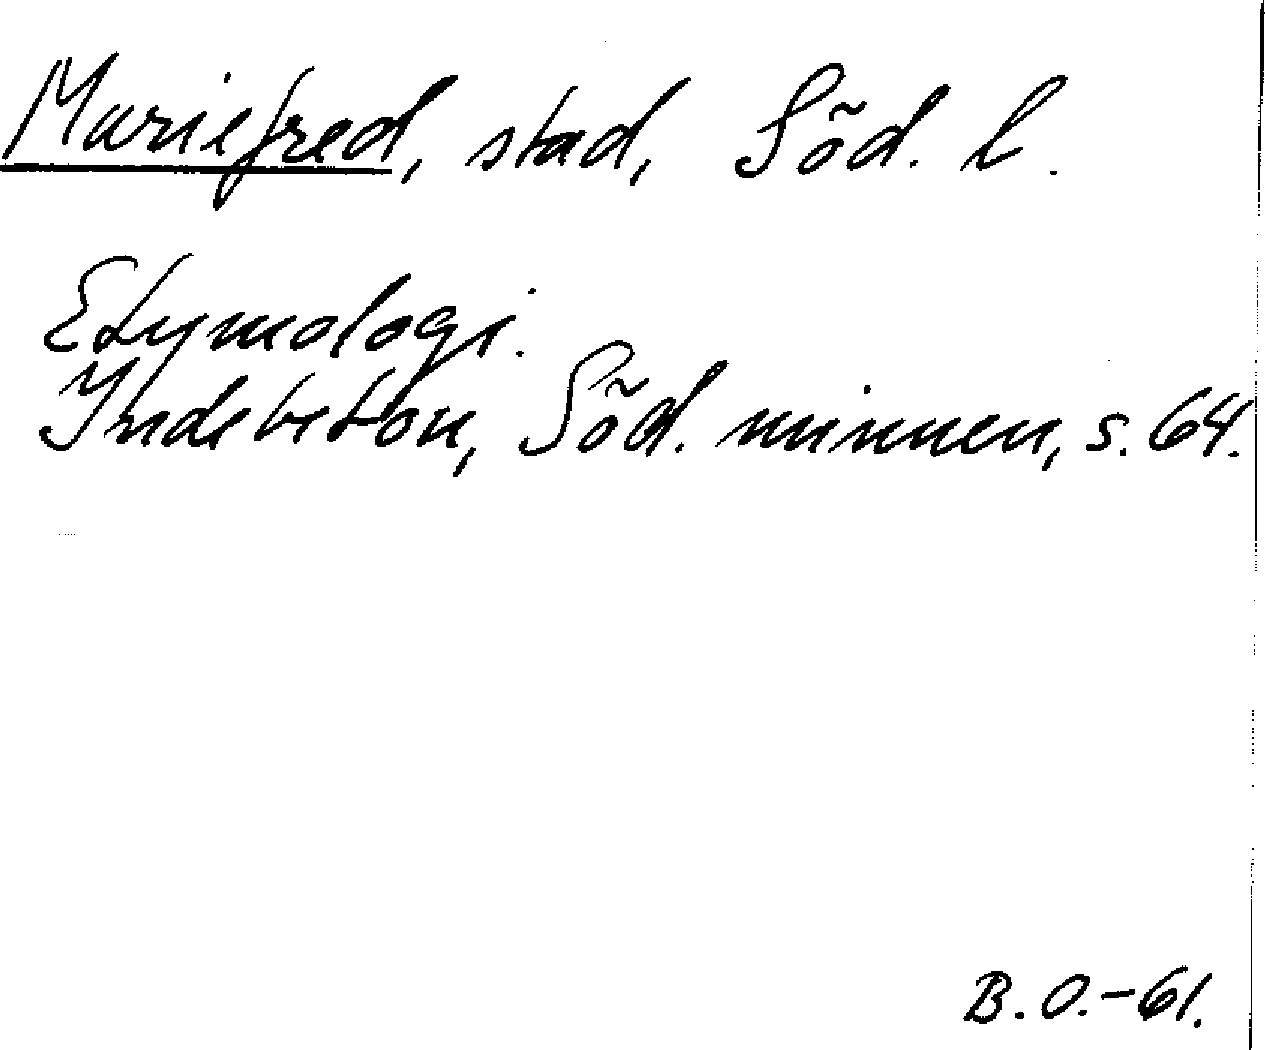 Mariefred, stad, Söd. l.
Etymologi.
Indebetou, Söd. minnen, s. 64.
B. O. -61.